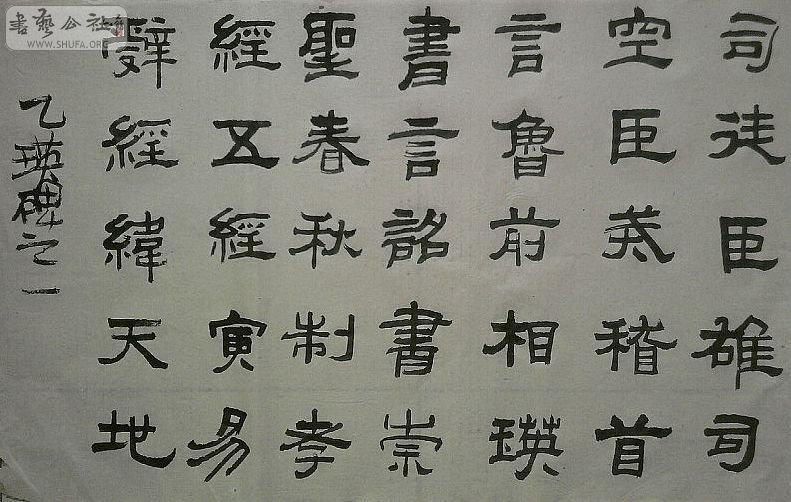 司徒臣雄司
空臣戒稽首
言魯前相瑛
書言詔書崇
聖春秋制孝
經五經寅易
辭經緯天地
乙瑛碑之一
書藝公社
WWW.SHUFA.ORG